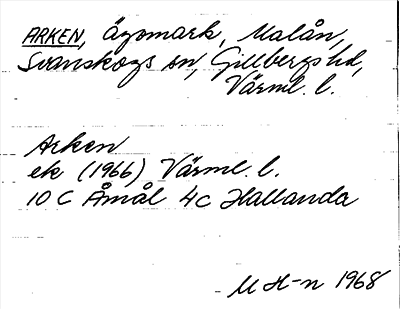 ARKEN, Ägomark, Malån,
Svanskogs sn, Gillbergs hd,
Värml. l.
Arken
ek (1966) Värml. l.
10 C Åmål 4c Hallanda
M H-n 1968